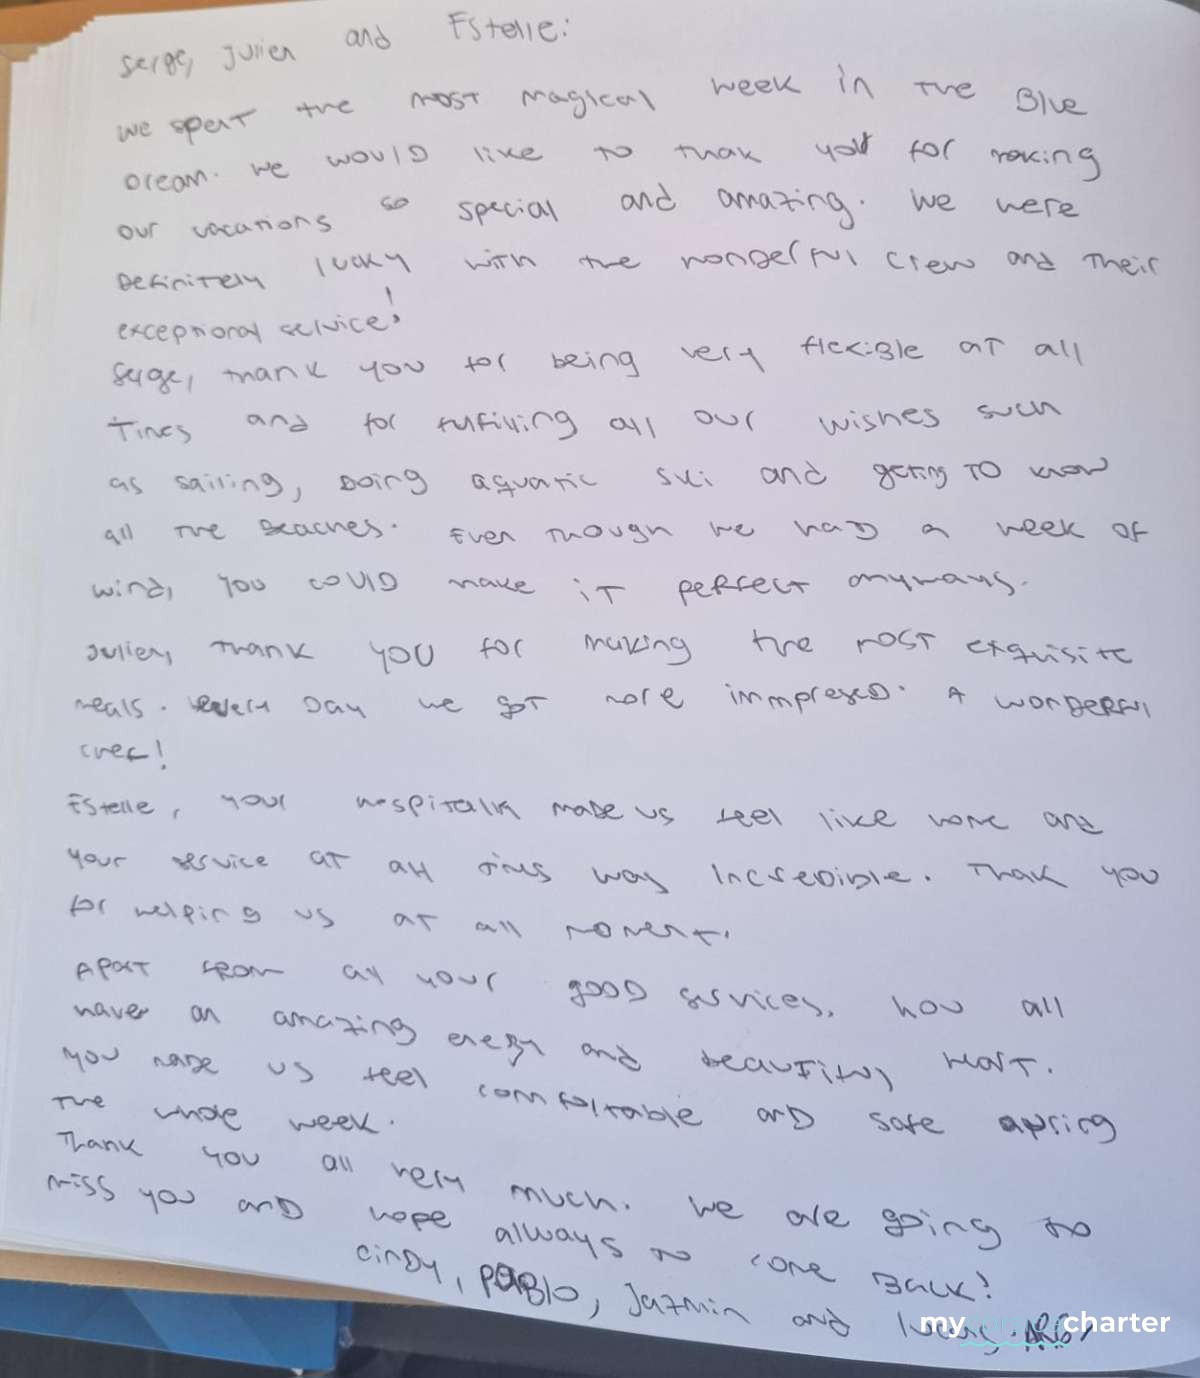 Serge, Julien and Estelle:
We spent the most magical week in the Blue
Ocean. We would like to thak you for making
our vacations so special and amazing. We were
Definitely lucky with the wonderful crew and their
exceptional service!
Serge, thank you for being very flexible at all
Times and for fulfilling all our wishes such
as sailing, Doing aquatic ski and geting to know
all the Beaches. Even though we had a week of
wind, you could make it perfect anyways.
Julien, thank you for making the most exquisite
meals. every Day we got more immpresed. A wonderful
chef!
Estelle, your hospitality made us feel like home and
your service at all times way incredible. Thak you
for helping us at all moment.
Apart from all your good services, you all
have an amazing energy and beautiful heart.
you made us feel comfortable and safe during
the whole week.
Thank you all very much. We are going to
miss you and hope allways to come Back!
Cindy, Pablo, Jazmin and Lucas. ARG
my charter